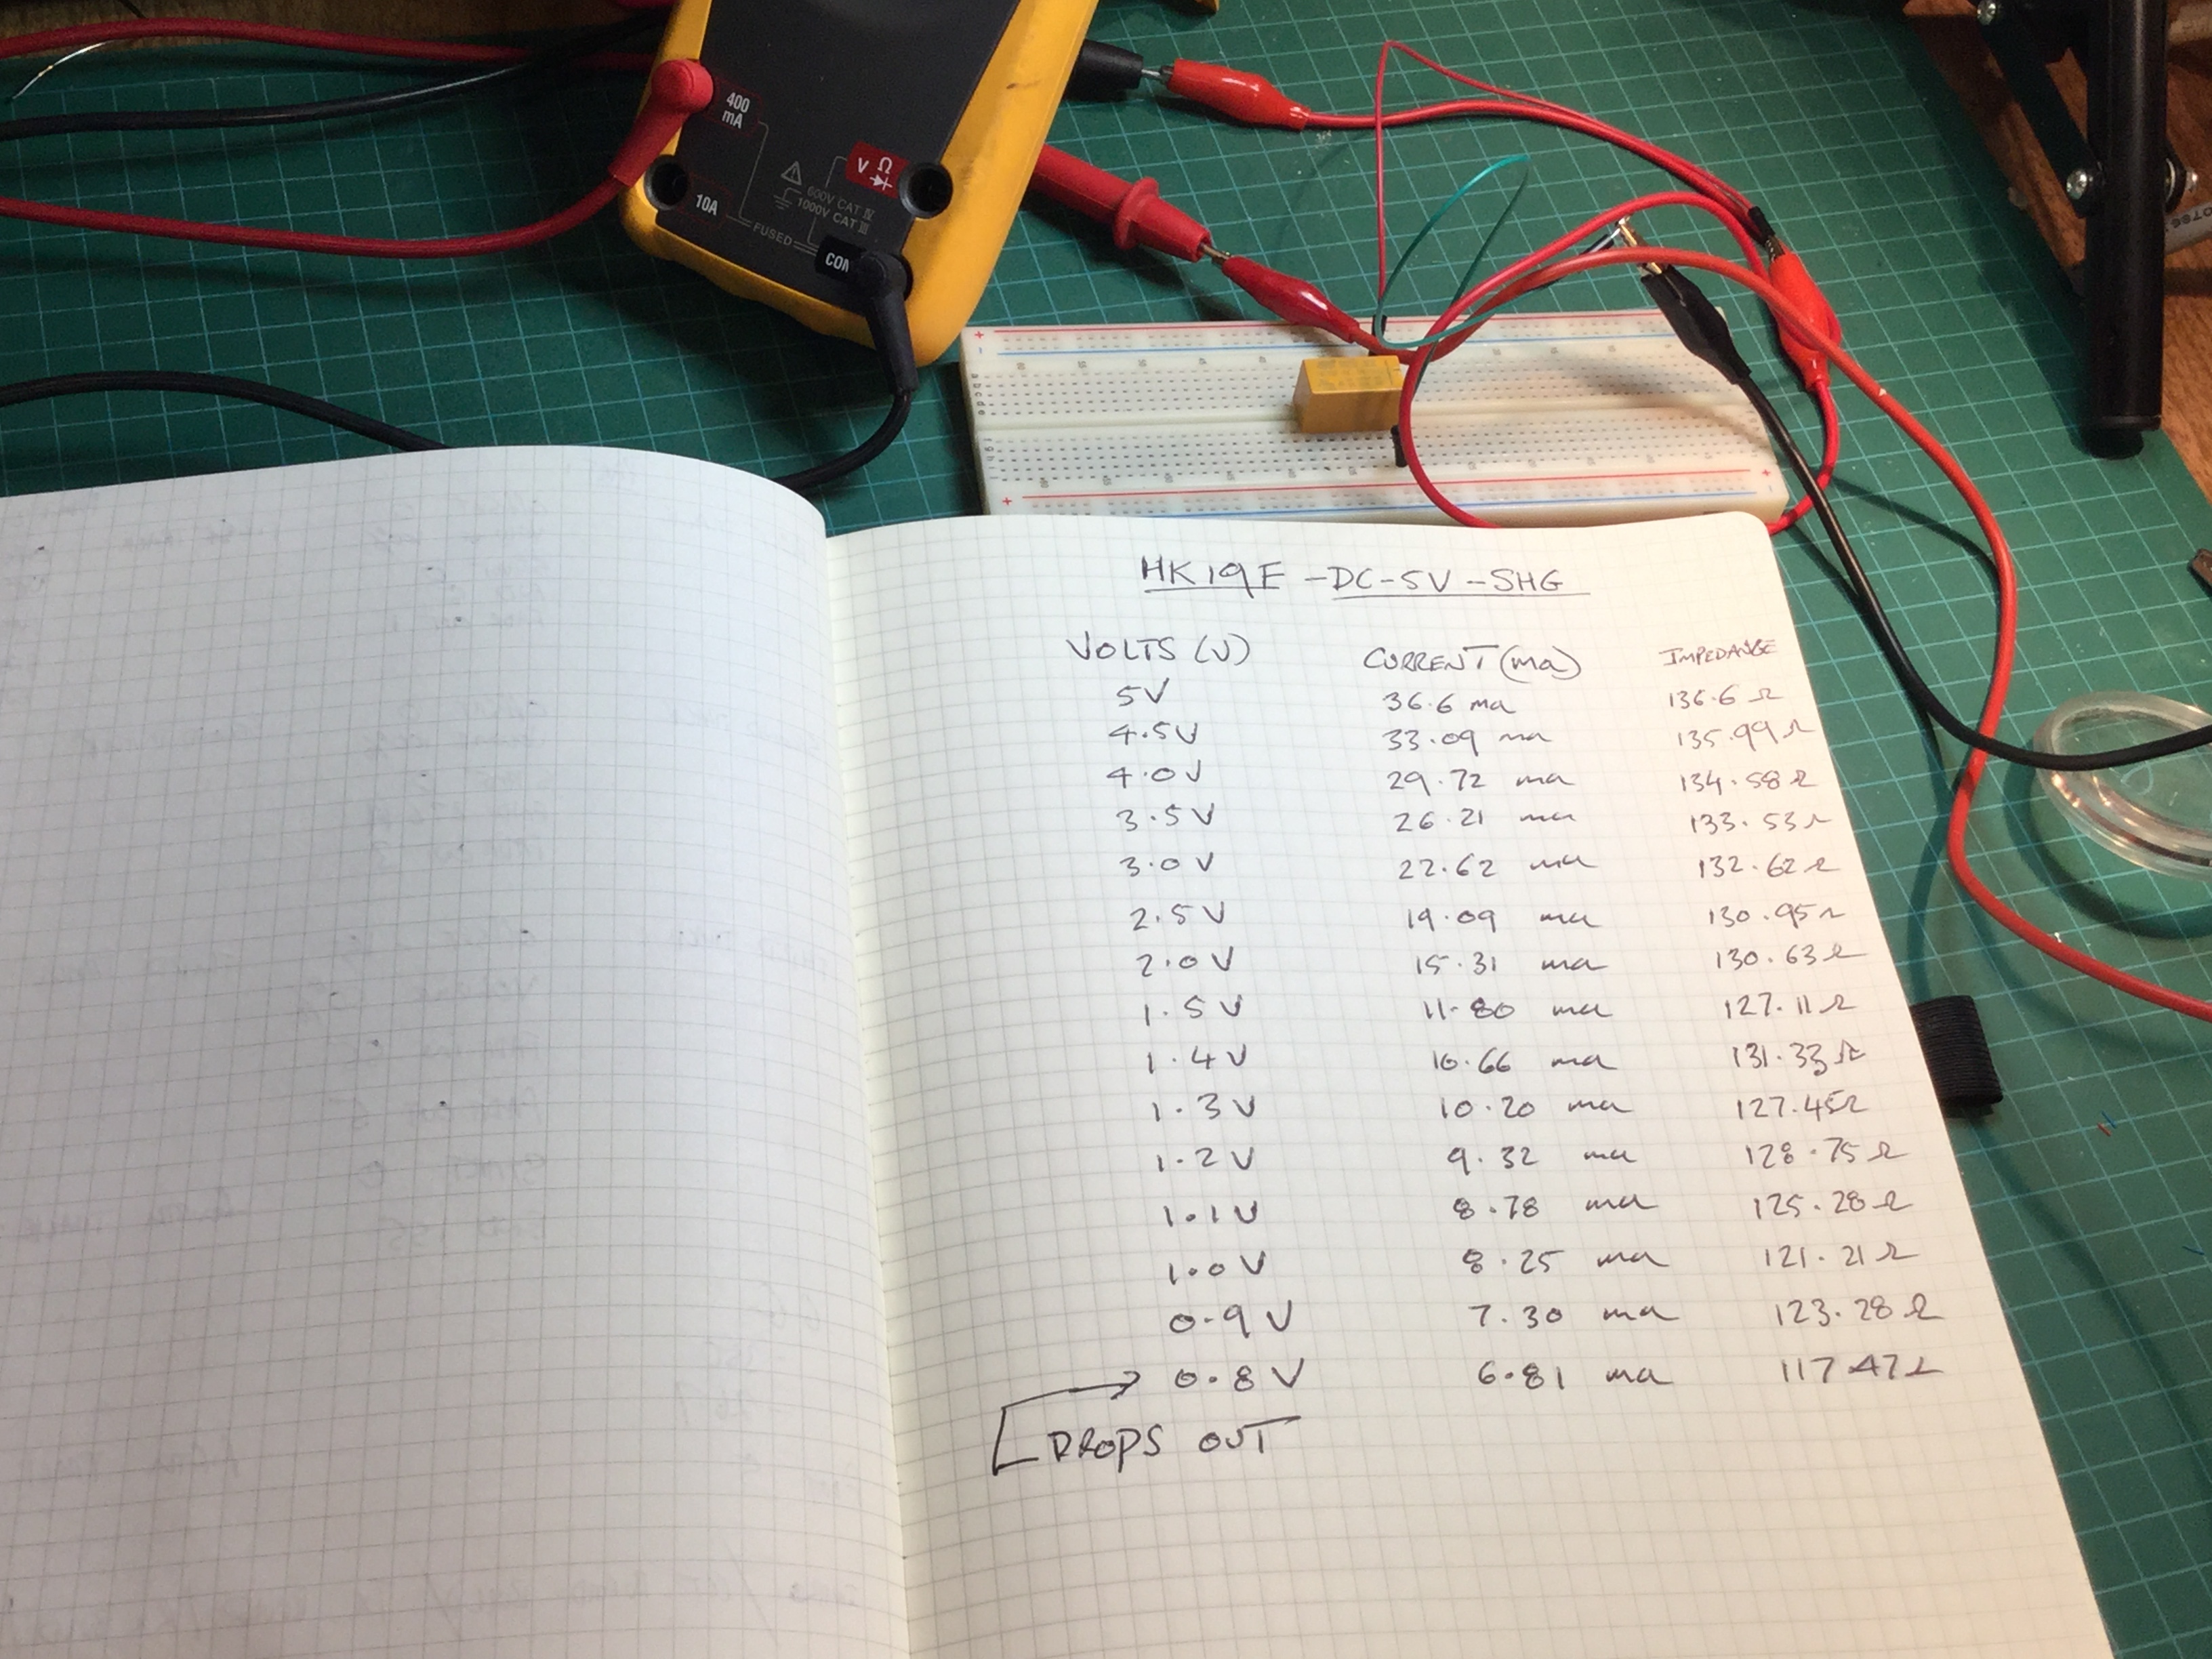 400
mA
V Ω
10A
600V CAT IV
1000V CAT III
FUSED
COM
HK19E-DC-5V-SHG
VOLTS (V) CURRENT (ma) IMPEDANCE
5V 36.6 ma 136.6 Ω
4.5V 33.09 ma 135.99 Ω
4.0V 29.72 ma 134.58 Ω
3.5V 26.21 ma 133.53 Ω
3.0V 22.62 ma 132.62 Ω
2.5V 19.09 ma 130.95 Ω
2.0V 15.31 ma 130.63 Ω
1.5V 11.80 ma 127.11 Ω
1.4V 10.66 ma 131.33 Ω
1.3V 10.20 ma 127.45 Ω
1.2V 9.32 ma 128.75 Ω
1.1V 8.78 ma 125.28 Ω
1.0V 8.25 ma 121.21 Ω
0.9V 7.30 ma 123.28 Ω
0.8V 6.81 ma 117.47 Ω
DROPS OUT